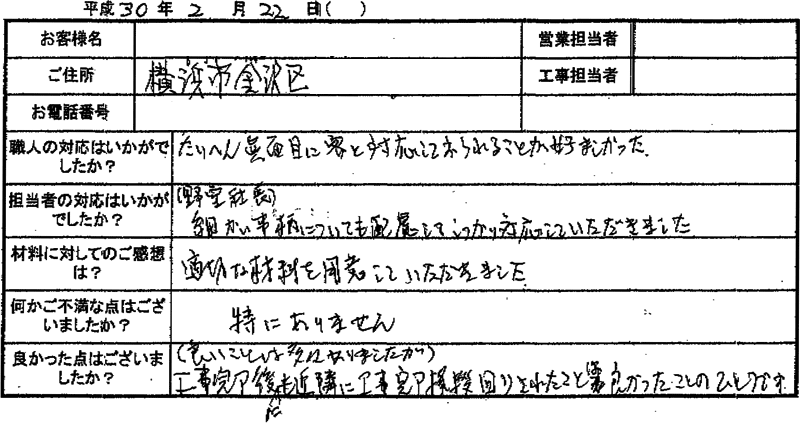 平成30年2月22日( )
お客様名
営業担当者
ご住所 横浜市金沢区
工事担当者
お電話番号
職人の対応はいかがで
したか？
たいへん真面目に客と対応しておられることが好ましかった.
担当者の対応はいかが
でしたか？
(野室社長)
細かい事柄についても配慮してしっかり対応していただきました
材料に対してのご感想
は？
適切な材料を用意していただきました
何かご不満な点はござ
いましたか？
特にありません
良かった点はございま
したか？
(良いことは多々ありましたが)
工事完了後も近隣に工事完了挨拶回りをされたこと 良かったことのひとつです